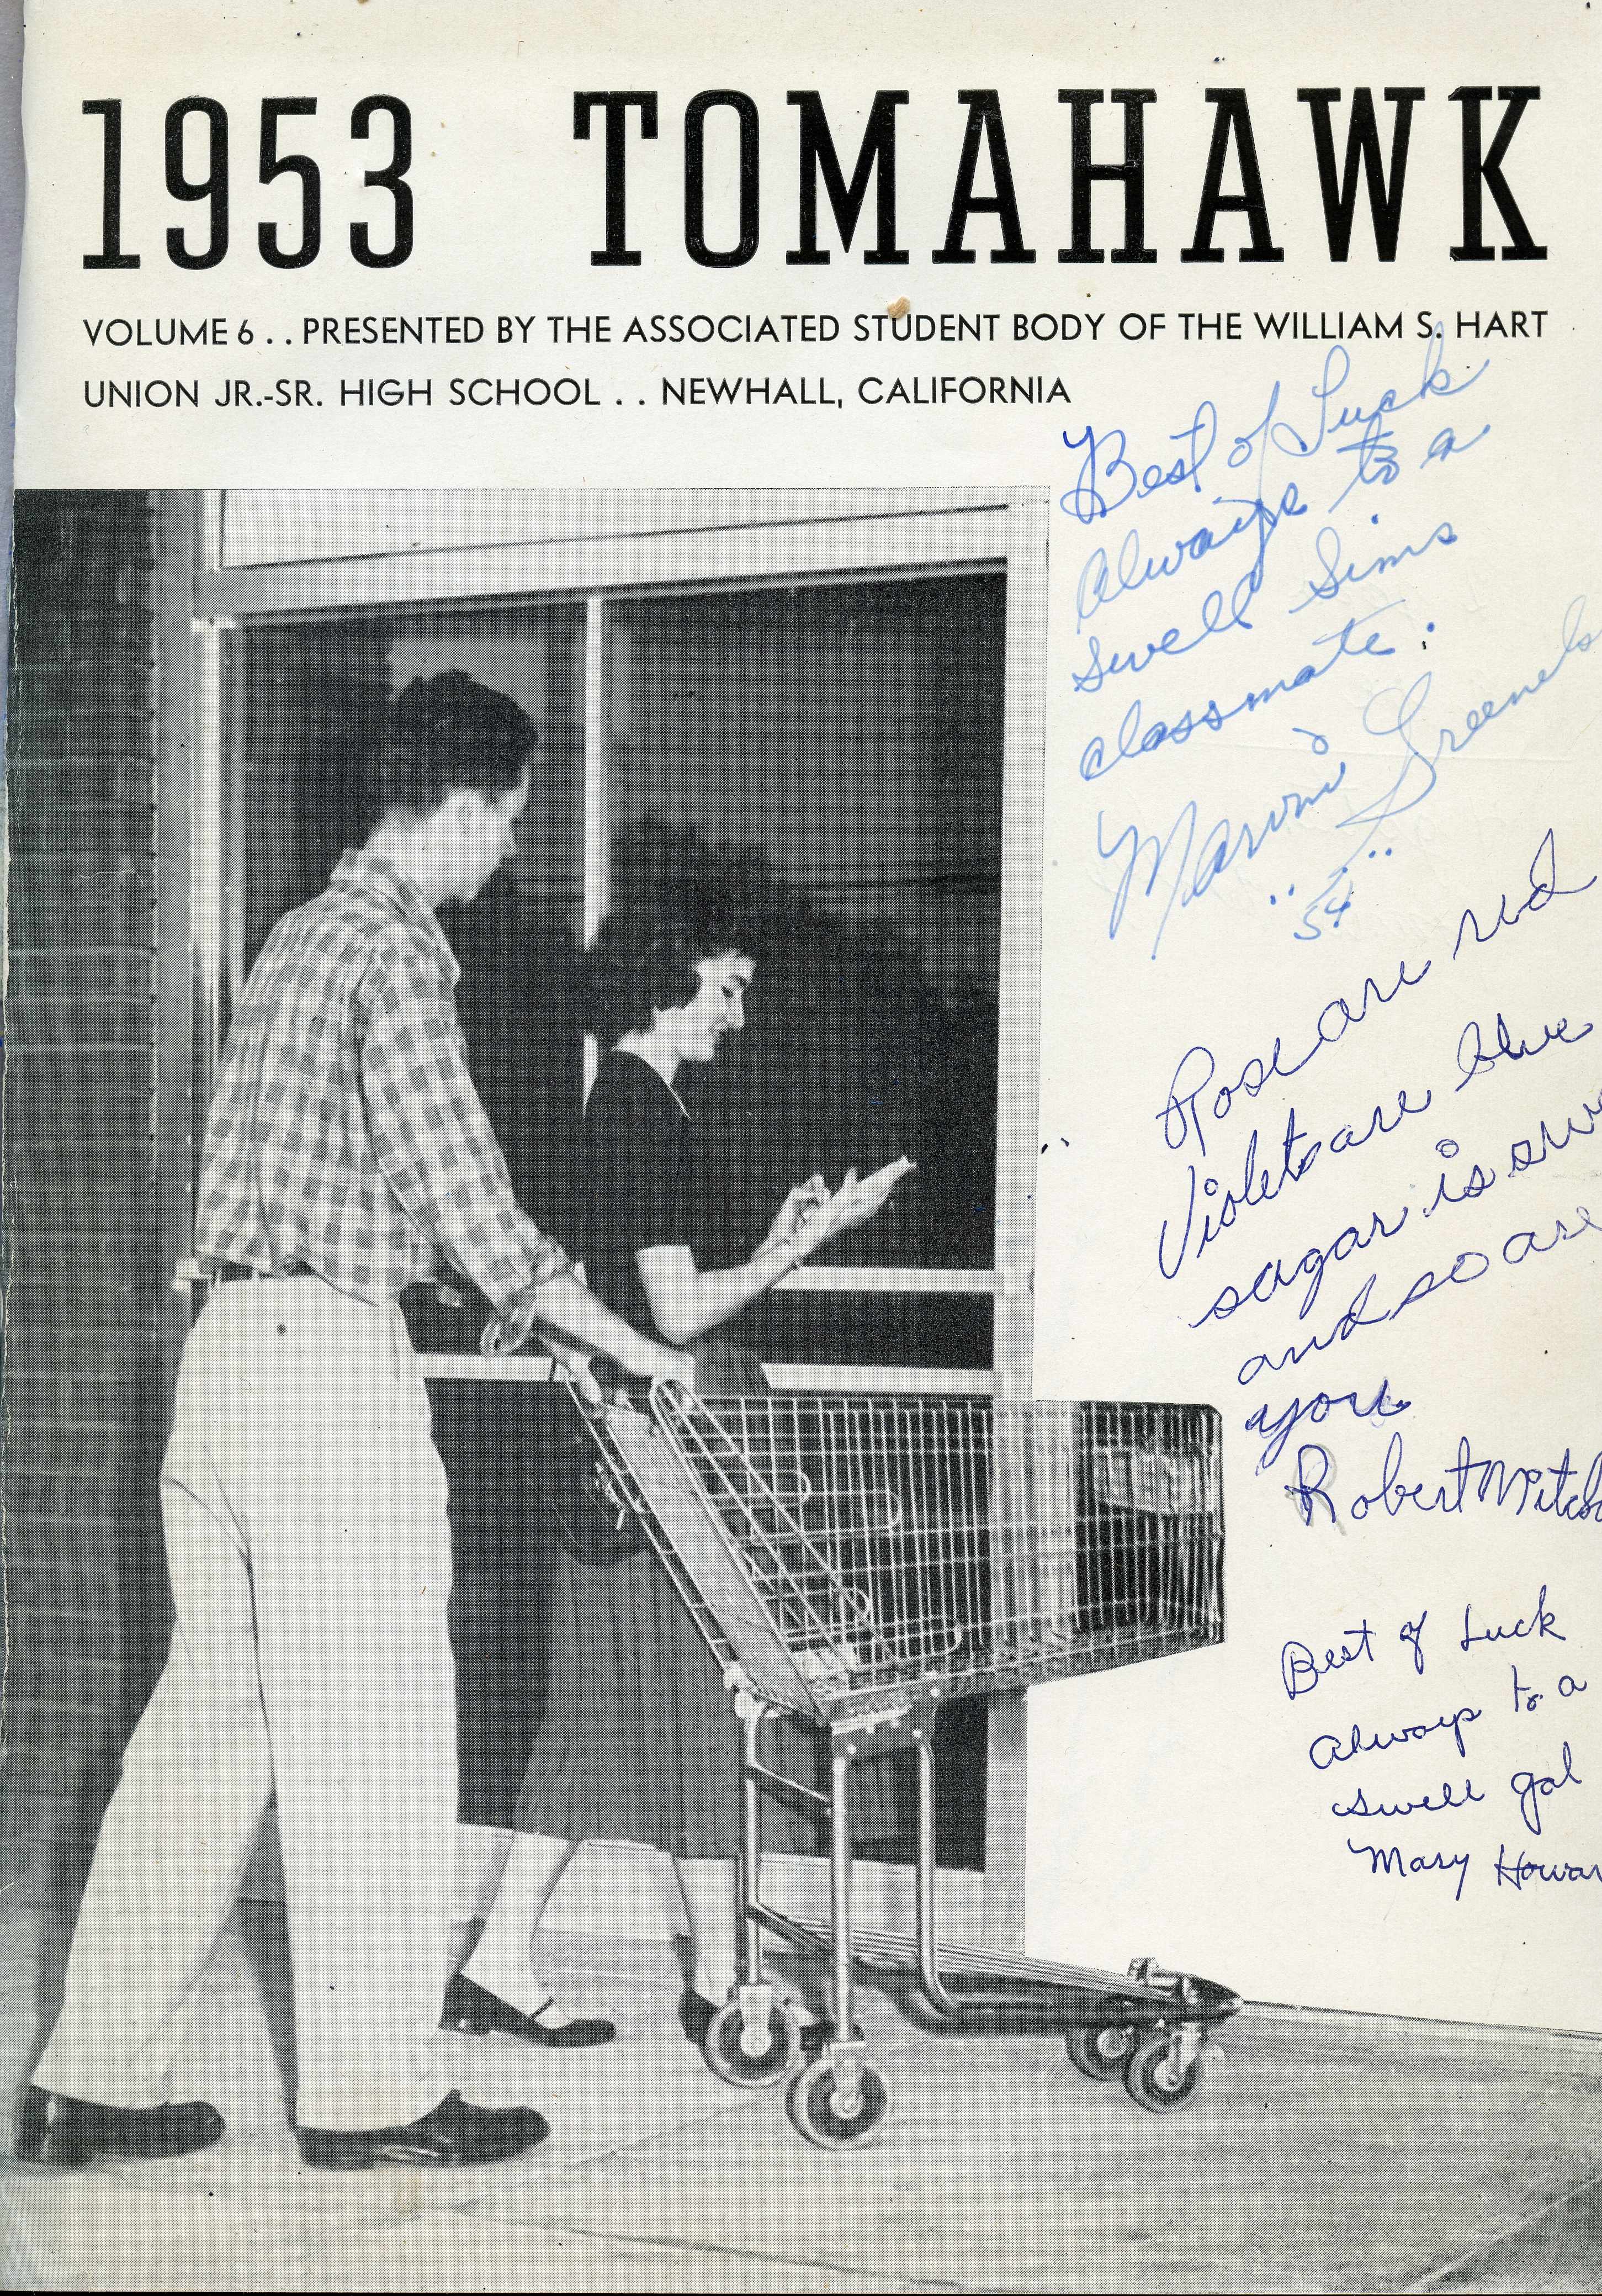 1953 TOMAHAWK
VOLUME 6 . . PRESENTED BY THE ASSOCIATED STUDENT BODY OF THE WILLIAM S. HART
UNION JR.-SR. HIGH SCHOOL . . NEWHALL, CALIFORNIA
Best of Luck
Always to a
swell Sims
classmate.
54
Rose are red
Violets are blue
sugar is swe
and so are
you
Robert Mitch
Best of Luck
Always to a
swell gal
Mary Howar